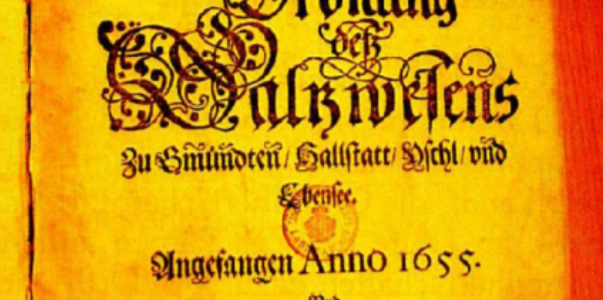 Ordnung
deß
Saltzwesens
Zu Gmündten/ Hallstatt/ Yschl/ vnd
Ebensee.
Angefangen Anno 1655.